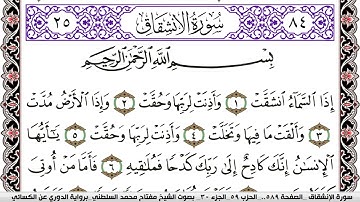 ٨٤ سُورَةُ الِانْشِقَاقِ ٢٥
بِسْمِ اللَّهِ الرَّحْمَٰنِ الرَّحِيمِ
إِذَا السَّمَاءُ انشَقَّتْ ١ وَأَذِنَتْ لِرَبِّهَا وَحُقَّتْ ٢ وَإِذَا الْأَرْضُ مُدَّتْ
٣ وَأَلْقَتْ مَا فِيهَا وَتَخَلَّتْ ٤ وَأَذِنَتْ لِرَبِّهَا وَحُقَّتْ ٥ يَٰأَيُّهَا
الْإِنسَٰنُ إِنَّكَ كَادِحٌ إِلَىٰ رَبِّكَ كَدْحًا فَمُلَٰقِيهِ ٦ فَأَمَّا مَنْ أُوتِيَ
سورة الإنشقاق.. الصفحة ٥٨٩.. الحزب ٥٩ الجزء ٣٠. بصوت الشيخ مفتاح محمد السلطني برواية الدوري عن الكسائي